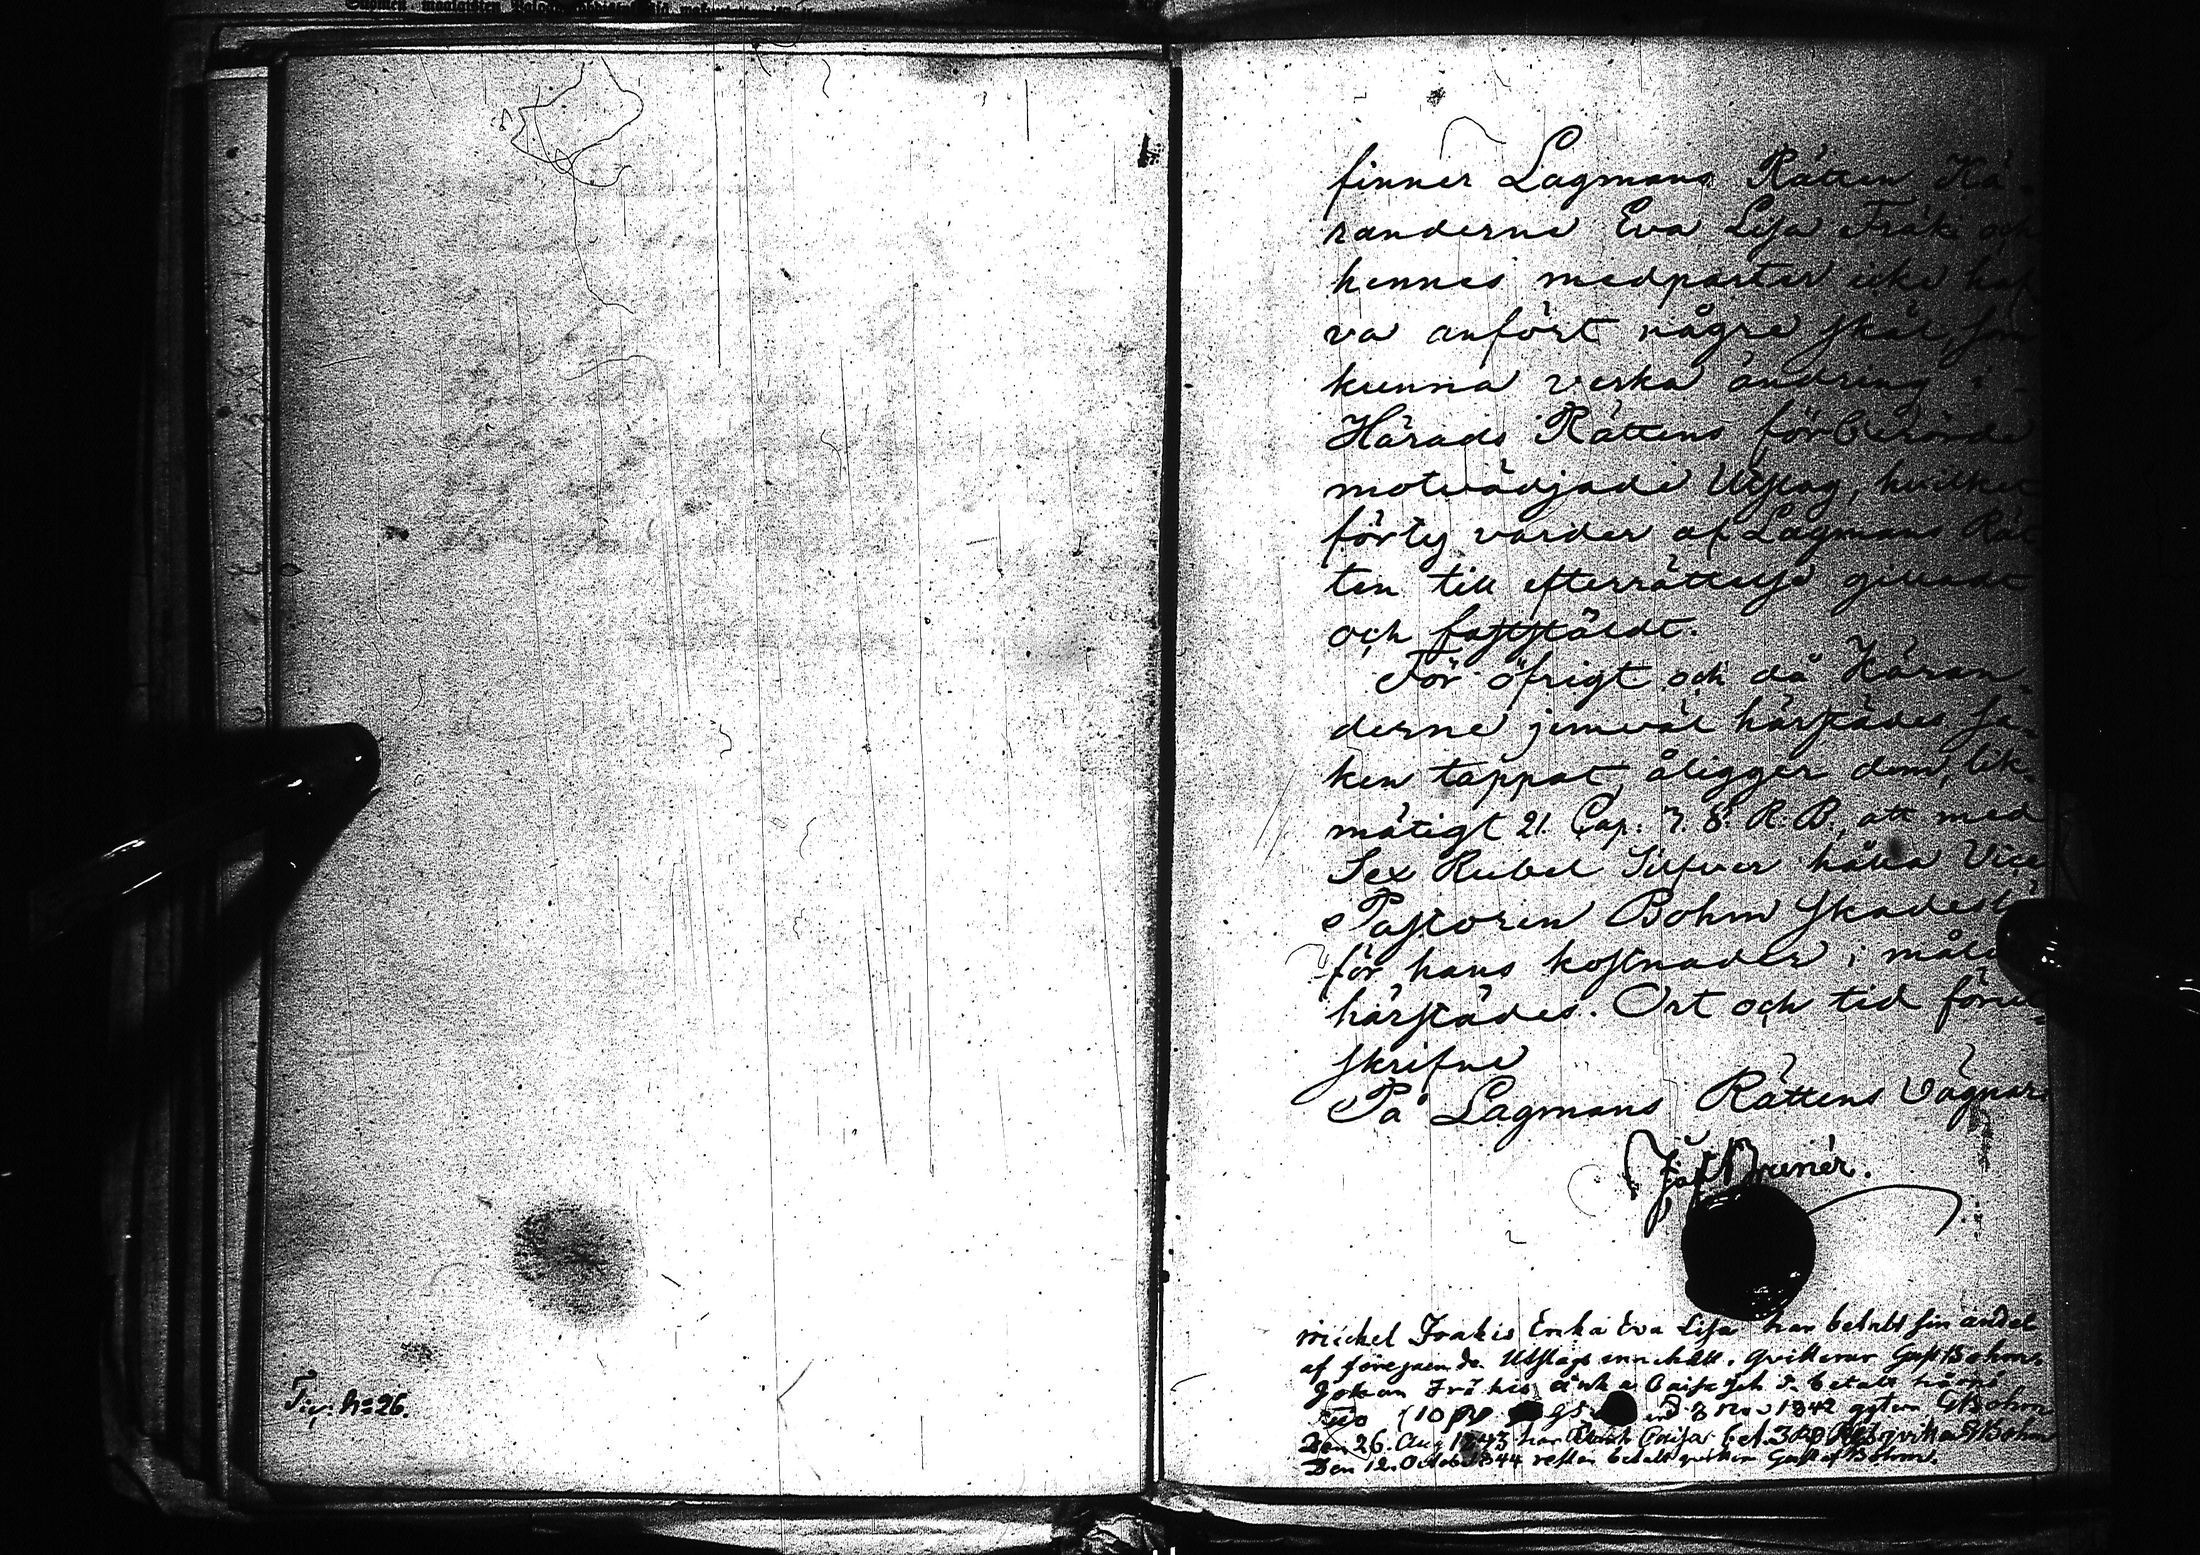 Tit: No 26.
finner Lagmans Rätten Kä-
randerne Eva Lisa Fräki och
hennes medparter icke haf
va anfört några skäl, som
kunna verka ändring i
Härads Rättens förberörde
motvädjade Utslag, hvilket
förty varder af Lagmans Rät
ten till efterrättelse gilladt
och fastställdt.
För öfrigt och då Käran-
derne jemväl härstädes sa-
ken tappat, åligger dem, lik-
mätigt 21. Cap: 3. §. R. B., att med
Sex Rubel Silfver hålla Vice
Pastoren Bohm skadeslö
för hans kostnader i målet
härstädes. Ort och tid förut-
skrifne
På Lagmans Rättens Vägnar:
Brunér.
Mickel Frakis Enka Eva Lisa har betalt sin andel
af föregaende Utslags innehåll, qvitterar Gust Bohm.
Johan Fräkis änka Caisa
1842 Bohm
Den 26. Aug 1843 har Enk Caisa bet. 3 Bohm
Den 12. Octob 1844 resten betalt qvitter Gustaf Bohm.